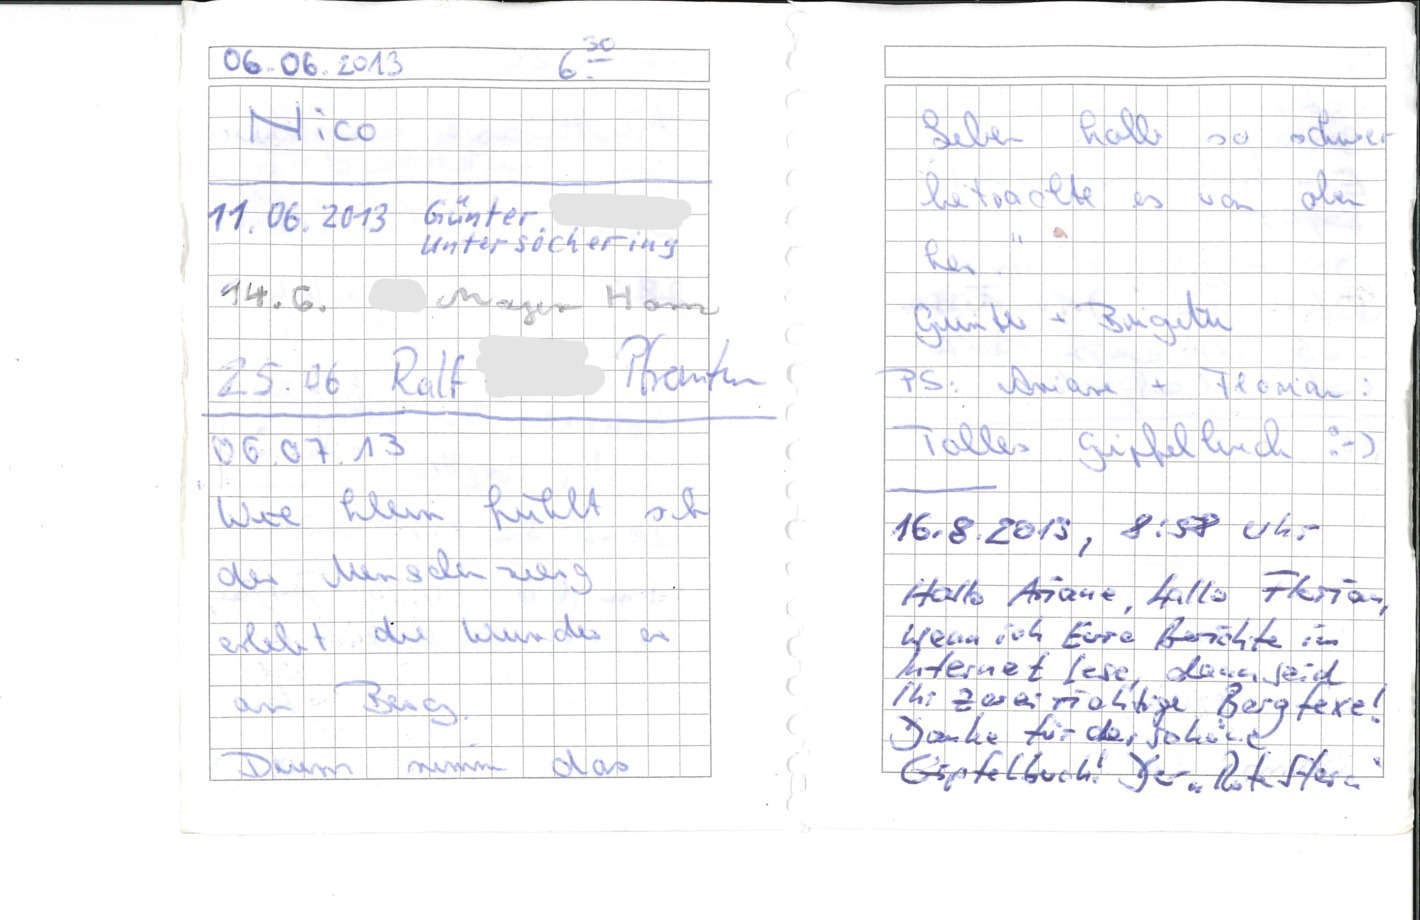 06.06.2013 6 30
Nico
11.06.2013 Günter
Untersöchering
14.6. Mayer Hans
25.06 Ralf Pfronten
06.07.13
"Wie klein fühlt sich
der Menschenzwerg
erlebt die Wunder er
am Berg.
Drum nimm das
Leben halb so schwer
betrachte es von oben
her"
Günter + Brigitte
PS: Ariane + Florian:
Tolles Gipfelbuch :-)
16.8.2013, 8:58 Uhr
Hallo Ariane, hallo Florian,
wenn ich Eure Berichte im
Internet lese, dann seid
Ihr zwei richtige Bergfexe!
Danke für das schöne
Gipfelbuch! Der "Rote Stern"